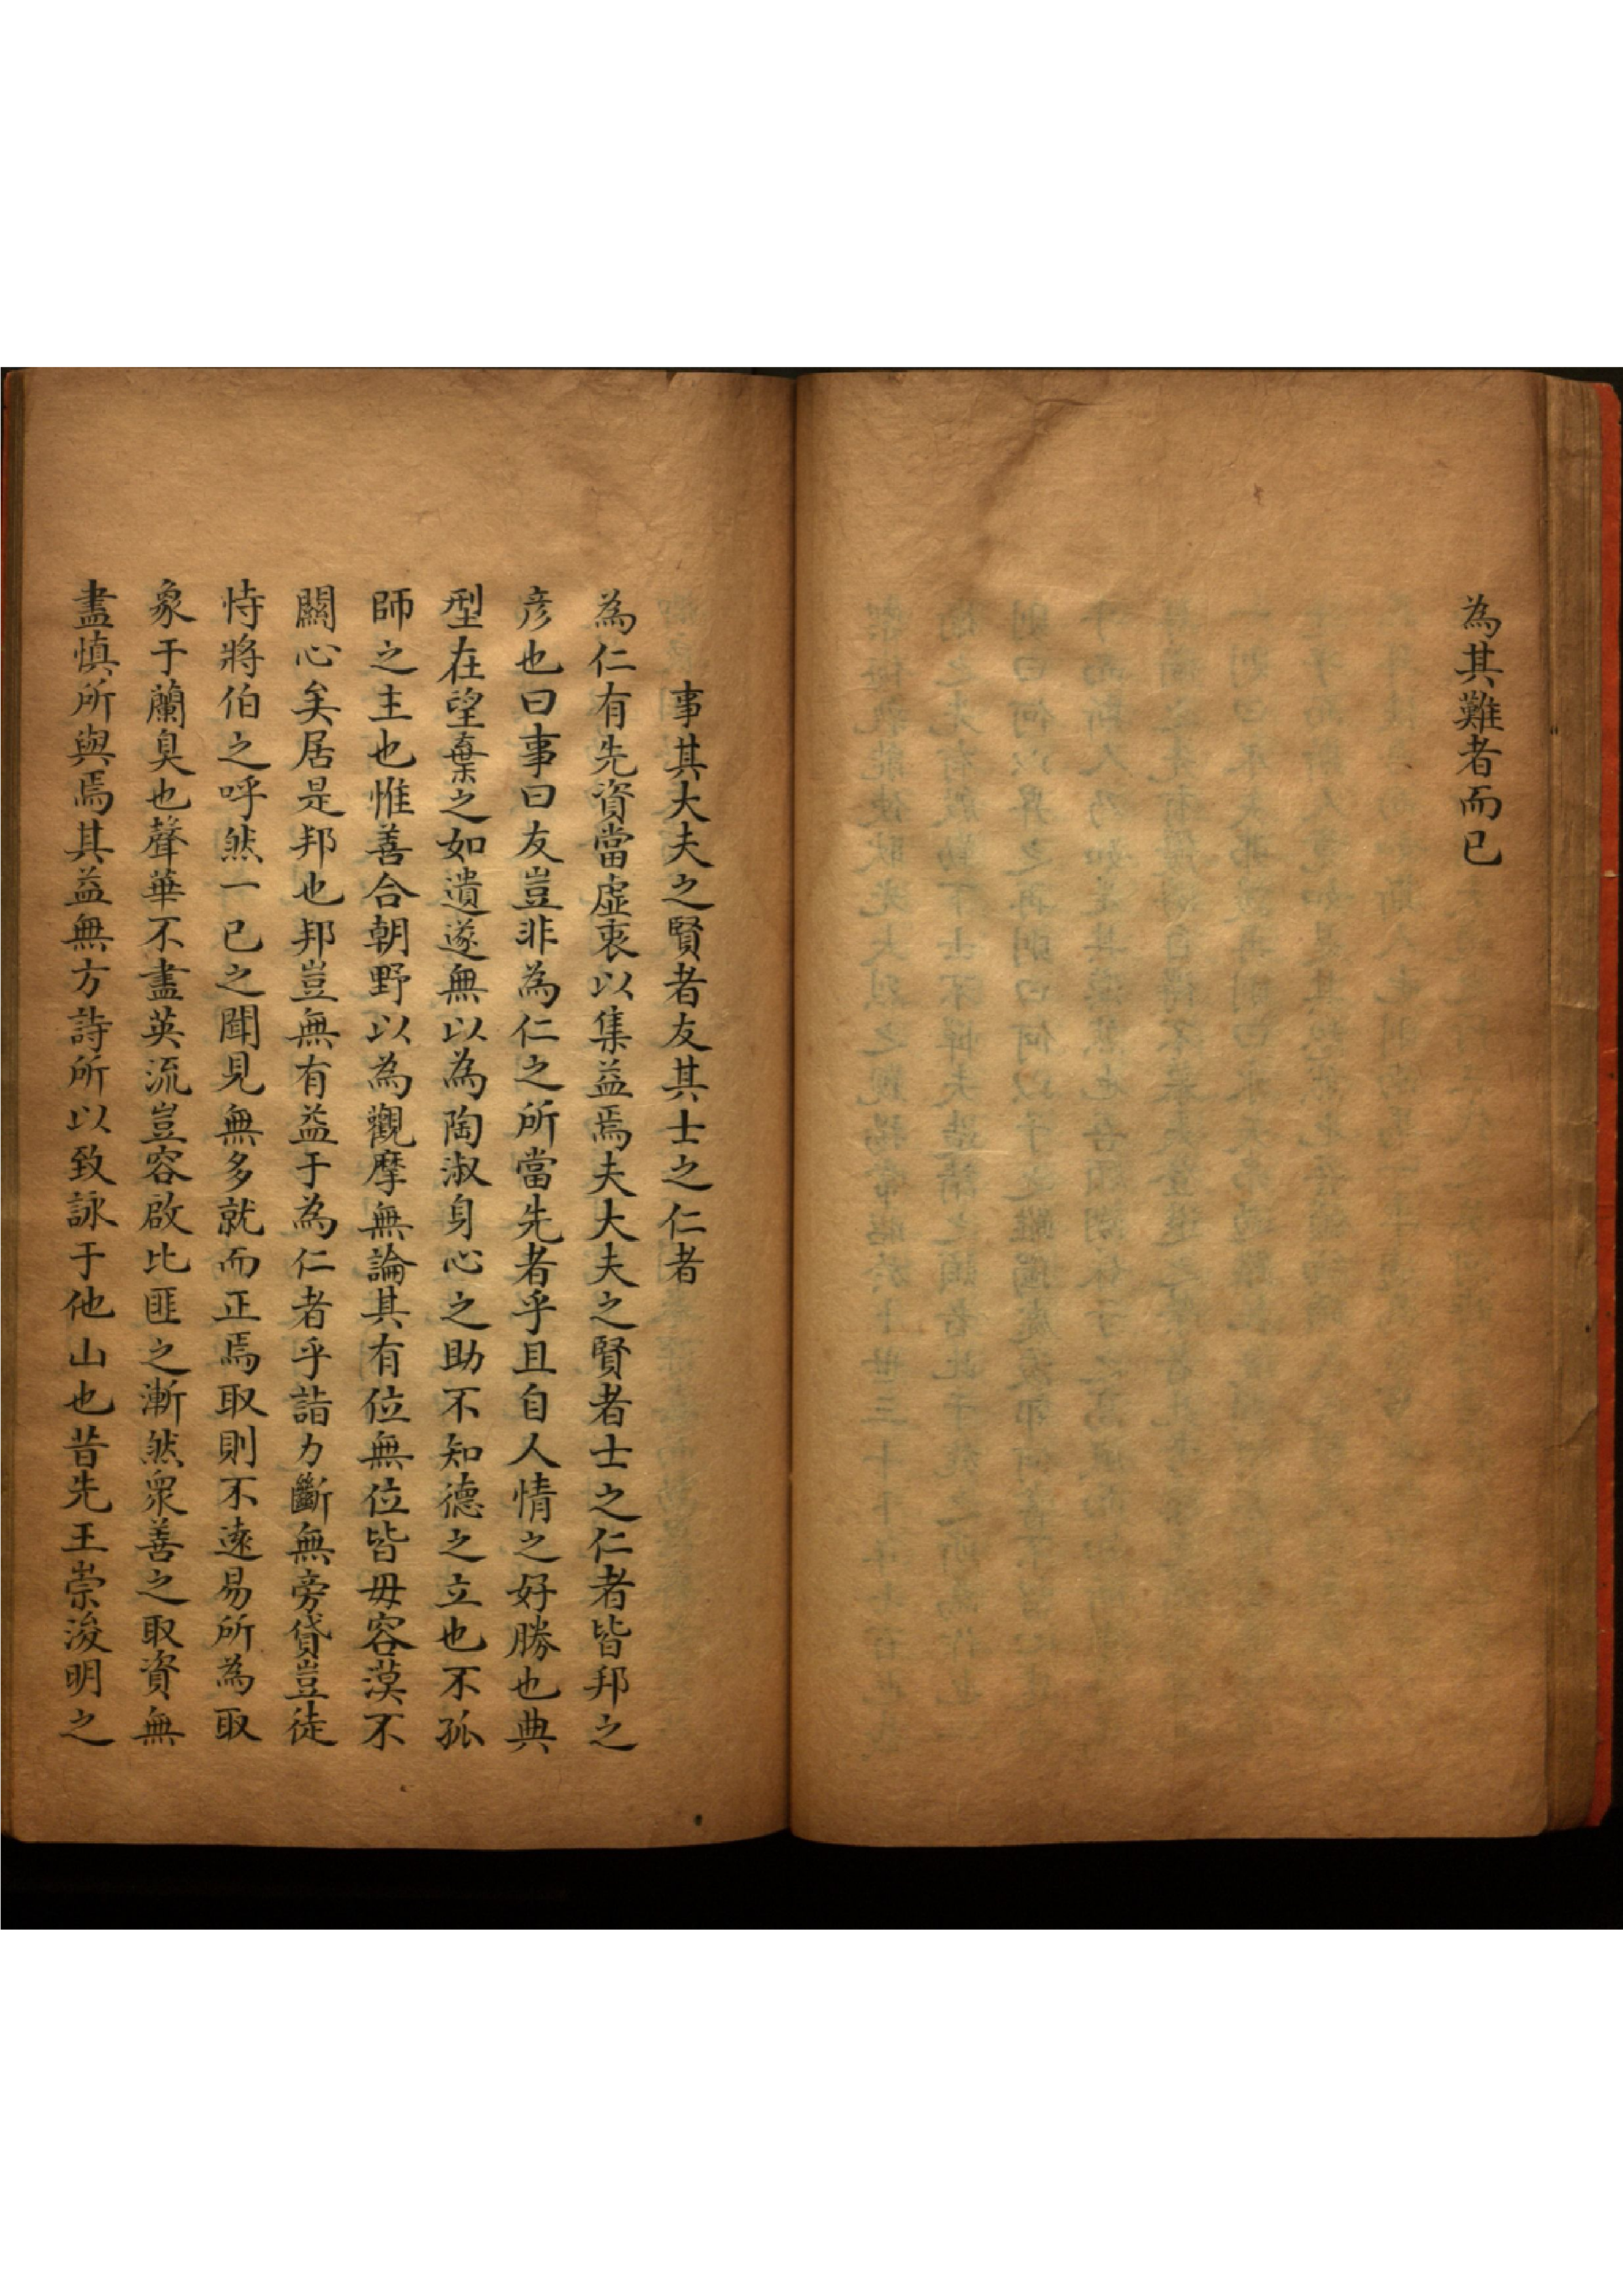 為其難者而已
事其大夫之賢者友其士之仁者
為仁有先資當虛衷以集益焉夫大夫之賢者士之仁者皆邦之
彥也曰事曰友豈非為仁之所當先者乎且自人情之好勝也典
型在望棄之如遺遂無以為陶淑身心之助不知德之立也不孤
師之主也惟善合朝野以為觀摩無論其有位無位皆毋容漠不
關心矣居是邦也邦豈無有益于為仁者乎詣力斷無旁貸豈徒
恃將伯之呼然一已之聞見無多就而正焉取則不遠易所為取
象于蘭臭也聲華不盡英流豈容啟比匪之漸然衆善之取資無
盡慎所與焉其益無方詩所以致詠于他山也昔先王崇浚明之